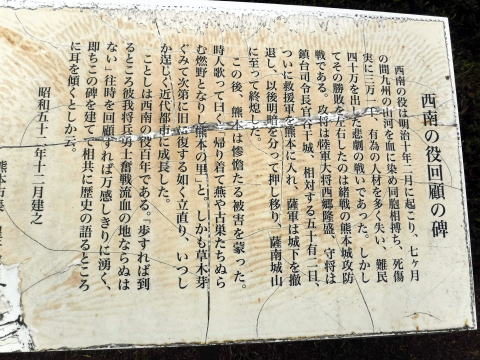 西南の役回顧の碑
西南の役は明治十年二月に起こり、七ヶ月
の間九州の山河を血に染め同胞相搏ち、死傷
実に三万一千、有為の人材を多く失い、難民
四十万を出した悲劇の戦いであった。しかし
てその勝敗を左右したのは緒戦の熊本城攻防
戦である。攻将は陸軍大将西郷隆盛、守将は
鎮台司令長官谷干城、相対する五十有二日、
ついに救援軍を熊本に入れ、薩軍は城下を撤
退し、以後明暗を分って押し移り、薩南城山
に至って終熄した。
この後、熊本は惨憺たる被害を蒙った。
時人歌って曰く「帰り着て燕や古巣たちぬら
む燃野となりし熊本の里」と。しかも草木芽
ぐみて次第に旧に復する如く立直り、いつし
か逞しく近代都市に成長した。
ことしは西南の役百年である。「歩すれば到
るところ彼我将兵勇士奮戦流血の地ならぬは
ない」往時を回顧すれば万感しきりに湧く、
即ちこの碑を建てて相共に歴史の語るところ
に耳を傾くとしか云。
昭和五十二年十二月建之
熊本市長